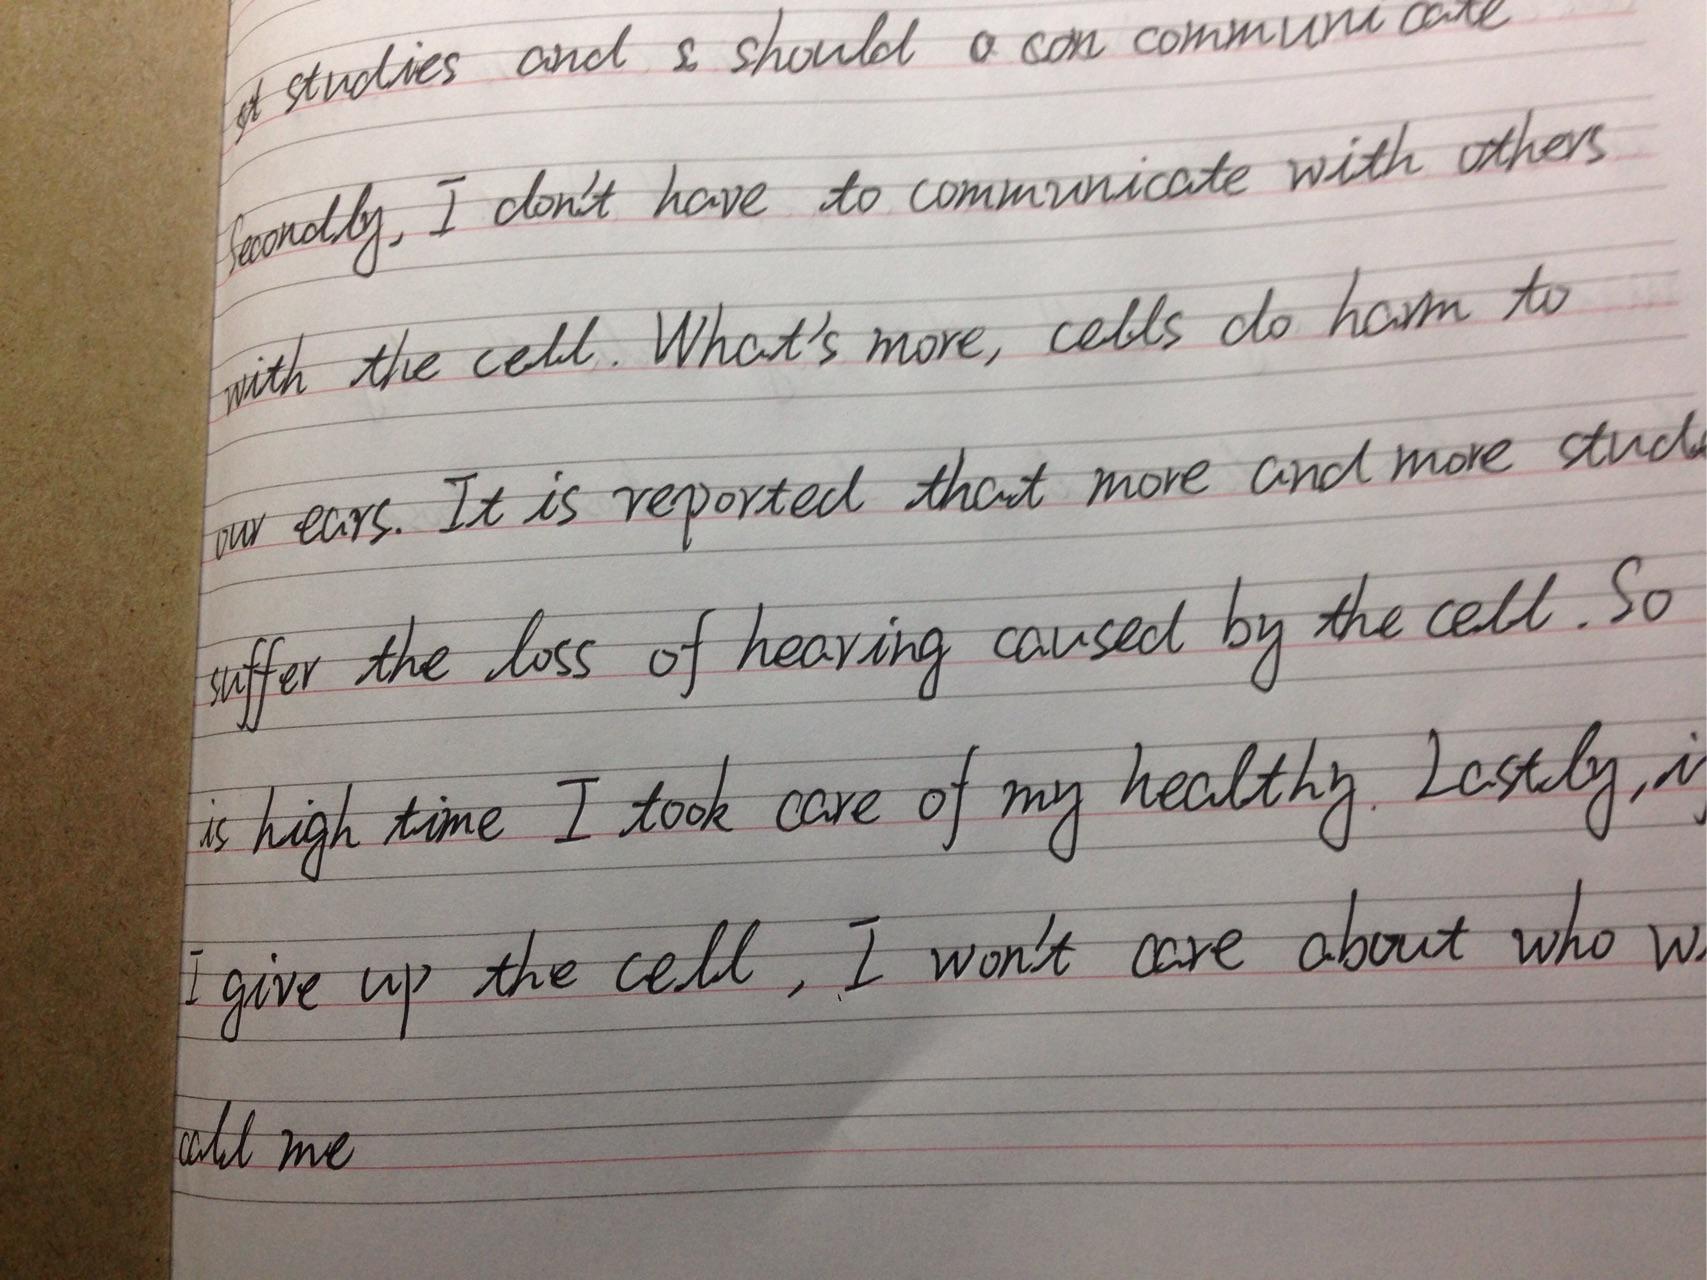 st studies and s should a con communicate
Secondly, I don't have to communicate with others
with the cell. What's more, cells do harm to
our ears. It is reported that more and more
suffer the loss of hearing caused by the cell. So
is high time I took care of my healthy. Lastly,
I give up the cell, I won't care about who
call me